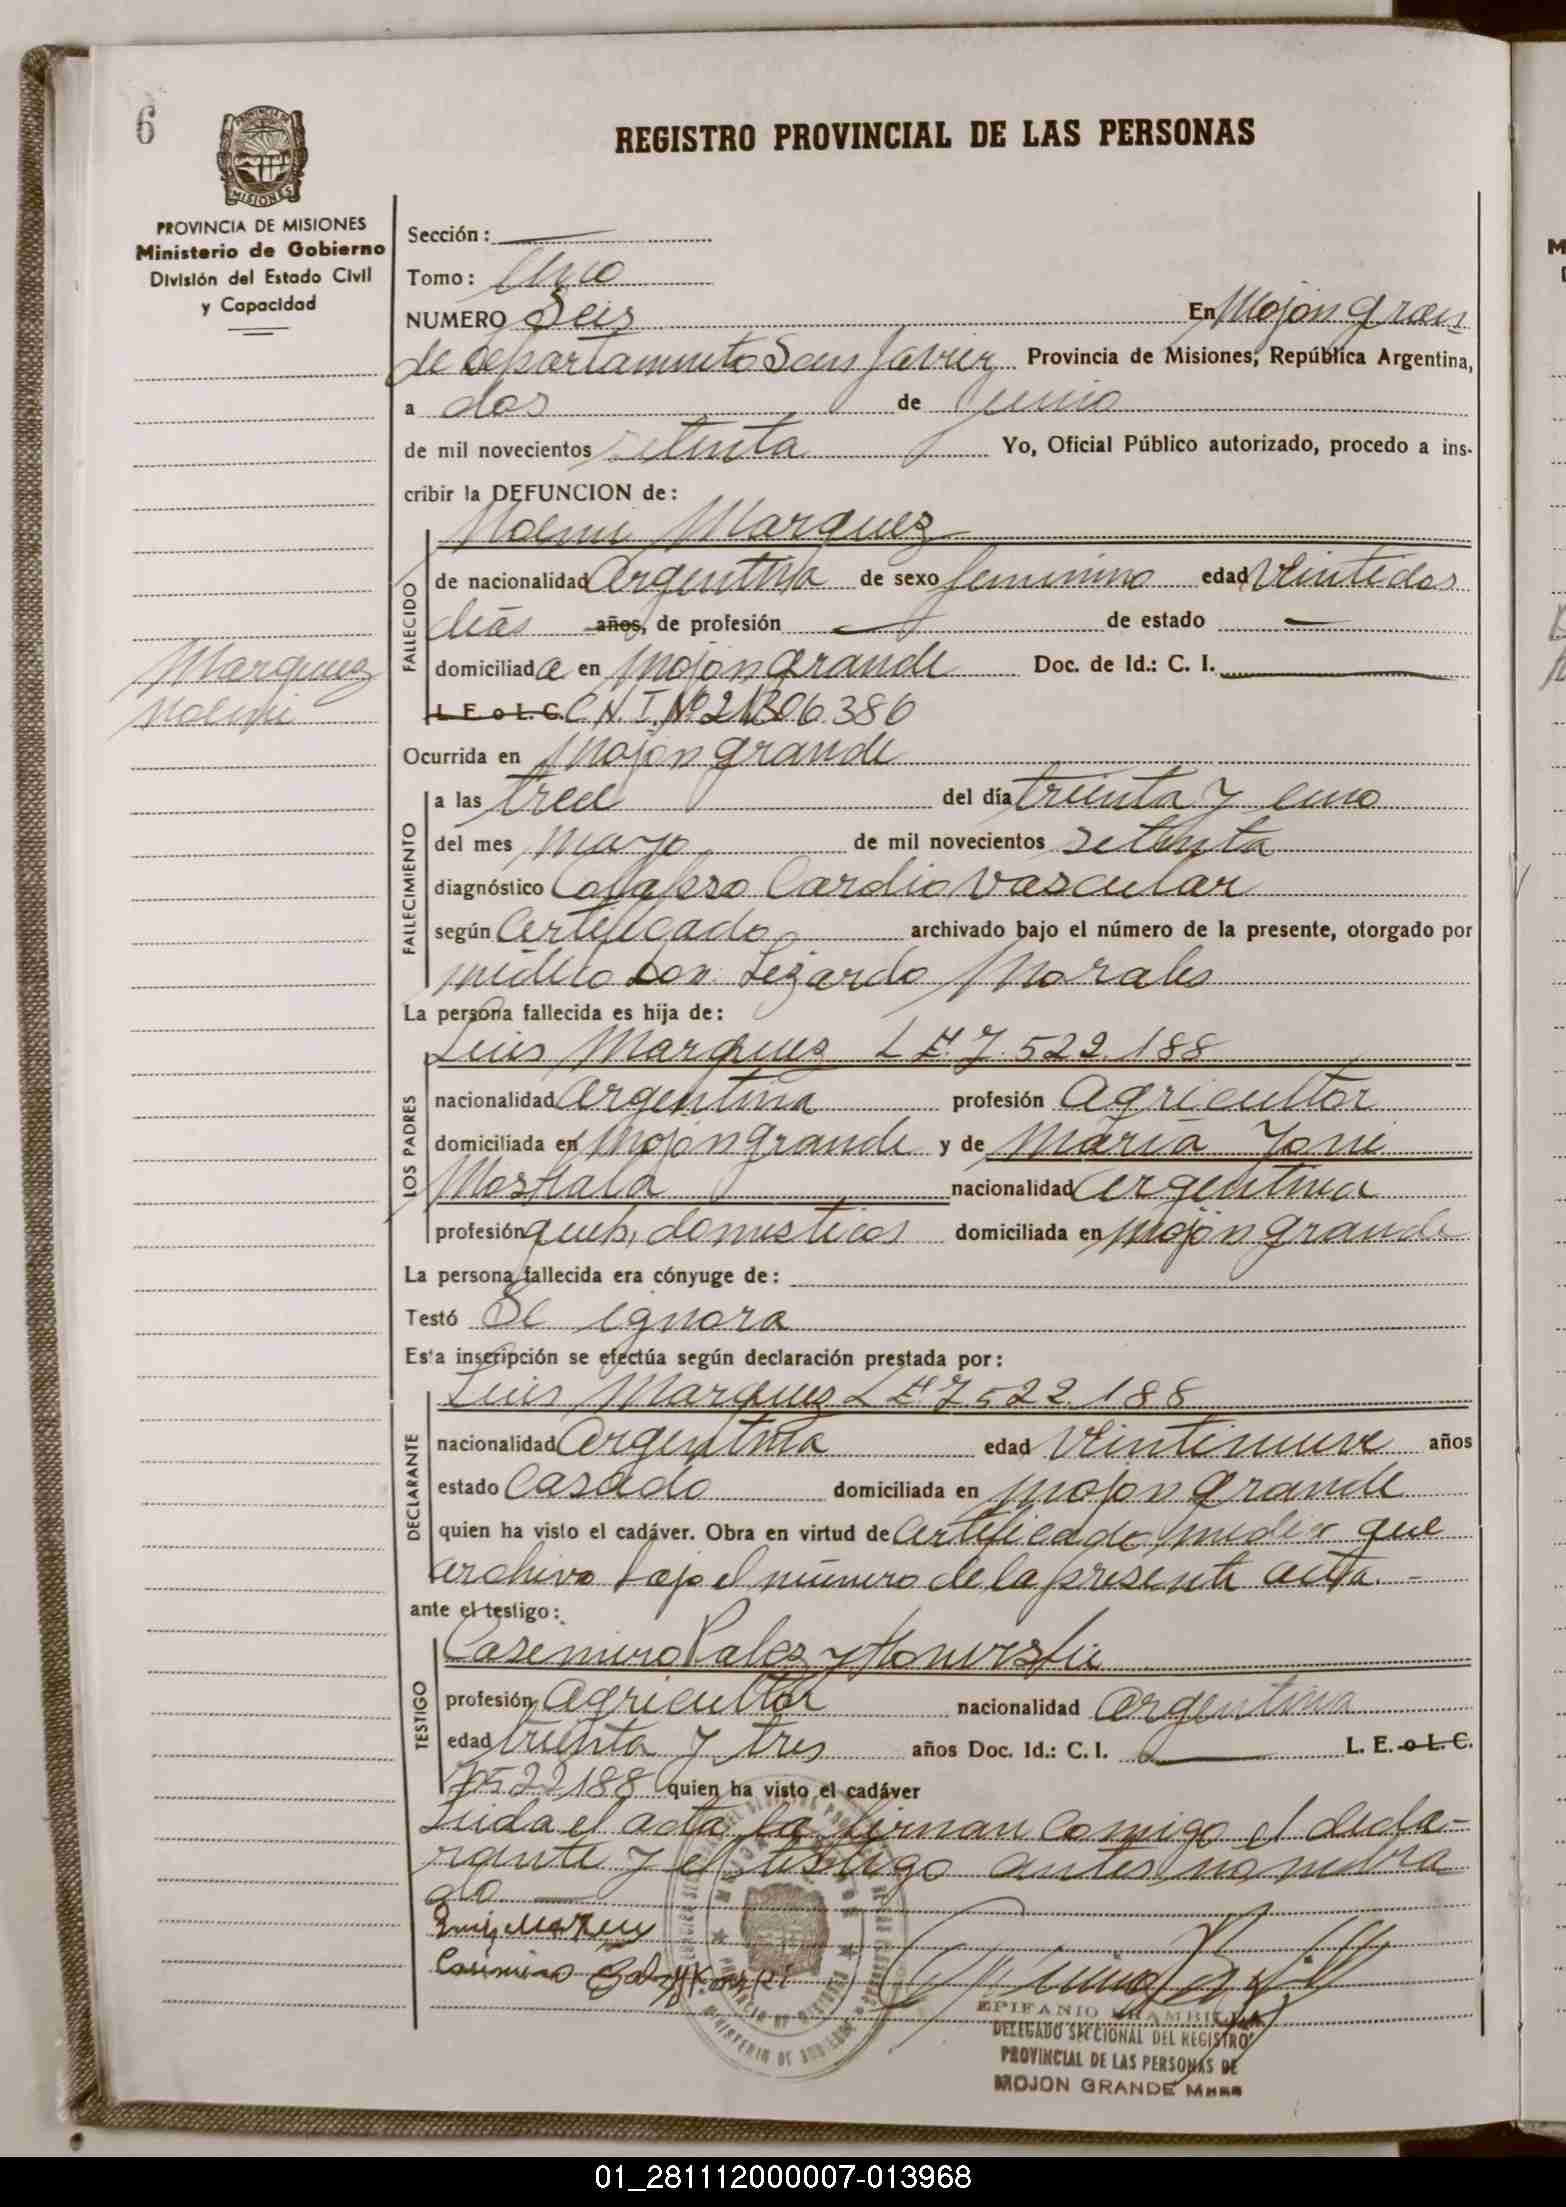 6
PROVINCIA DE MISIONES
Ministerio de Gobierno
División del Estado Civil
y Capacidad
REGISTRO PROVINCIAL DE LAS PERSONAS
Sección:
Tomo: Unico
NUMERO Seis En Mojon gran
de departamento San Javier Provincia de Misiones, República Argentina,
a dos de junio
de mil novecientos setenta Yo, Oficial Público autorizado, procedo a ins-
cribir la DEFUNCION de:
Noemi Marquez
FALLECIDO
de nacionalidad Argentina de sexo femenino edad veintidos
dias años, de profesión de estado
domiciliada en Mojon grande Doc. de Id.: C. I.
L. E. o L. C. C.N.I. Nº 21.306.386
Marquez
Noemi
Ocurrida en Mojon grande
FALLECIMIENTO
a las trece del día treinta y uno
del mes mayo de mil novecientos setenta
diagnóstico Colapso Cardio vascular
según Certificado archivado bajo el número de la presente, otorgado por
médico Don Lizardo Morales
La persona fallecida es hija de:
LOS PADRES
Luis Marquez L E. 7.522.188
nacionalidad Argentina profesión Agricultor
domiciliada en Mojon grande y de Maria
nacionalidad argentina
profesión queh. domesticos domiciliada en Mojon grande
La persona fallecida era cónyuge de:
Testó Se ignora
Esta inscripción se efectúa según declaración prestada por:
DECLARANTE
Luis Marquez L E 7.522.188
nacionalidad Argentina edad veintinueve años
estado Casado domiciliada en Mojon grande
quien ha visto el cadáver. Obra en virtud de Certificado medico que
archivo bajo el número de la presente acta.-
ante el testigo:
TESTIGO
Casemiro
profesión Agricultor nacionalidad argentina
edad treinta y tres años Doc. Id.: C. I. L. E. o L. C.
7522188 quien ha visto el cadáver
Leida el acta, la firman Comigo el decla-
rante y el testigo antes nombra
do
Luis Marquez
Casimiro
EPIFANIO BRAMBILLA
DELEGADO SECCIONAL DEL REGISTRO
PROVINCIAL DE LAS PERSONAS DE
MOJON GRANDE Mnes
01_281112000007-013968